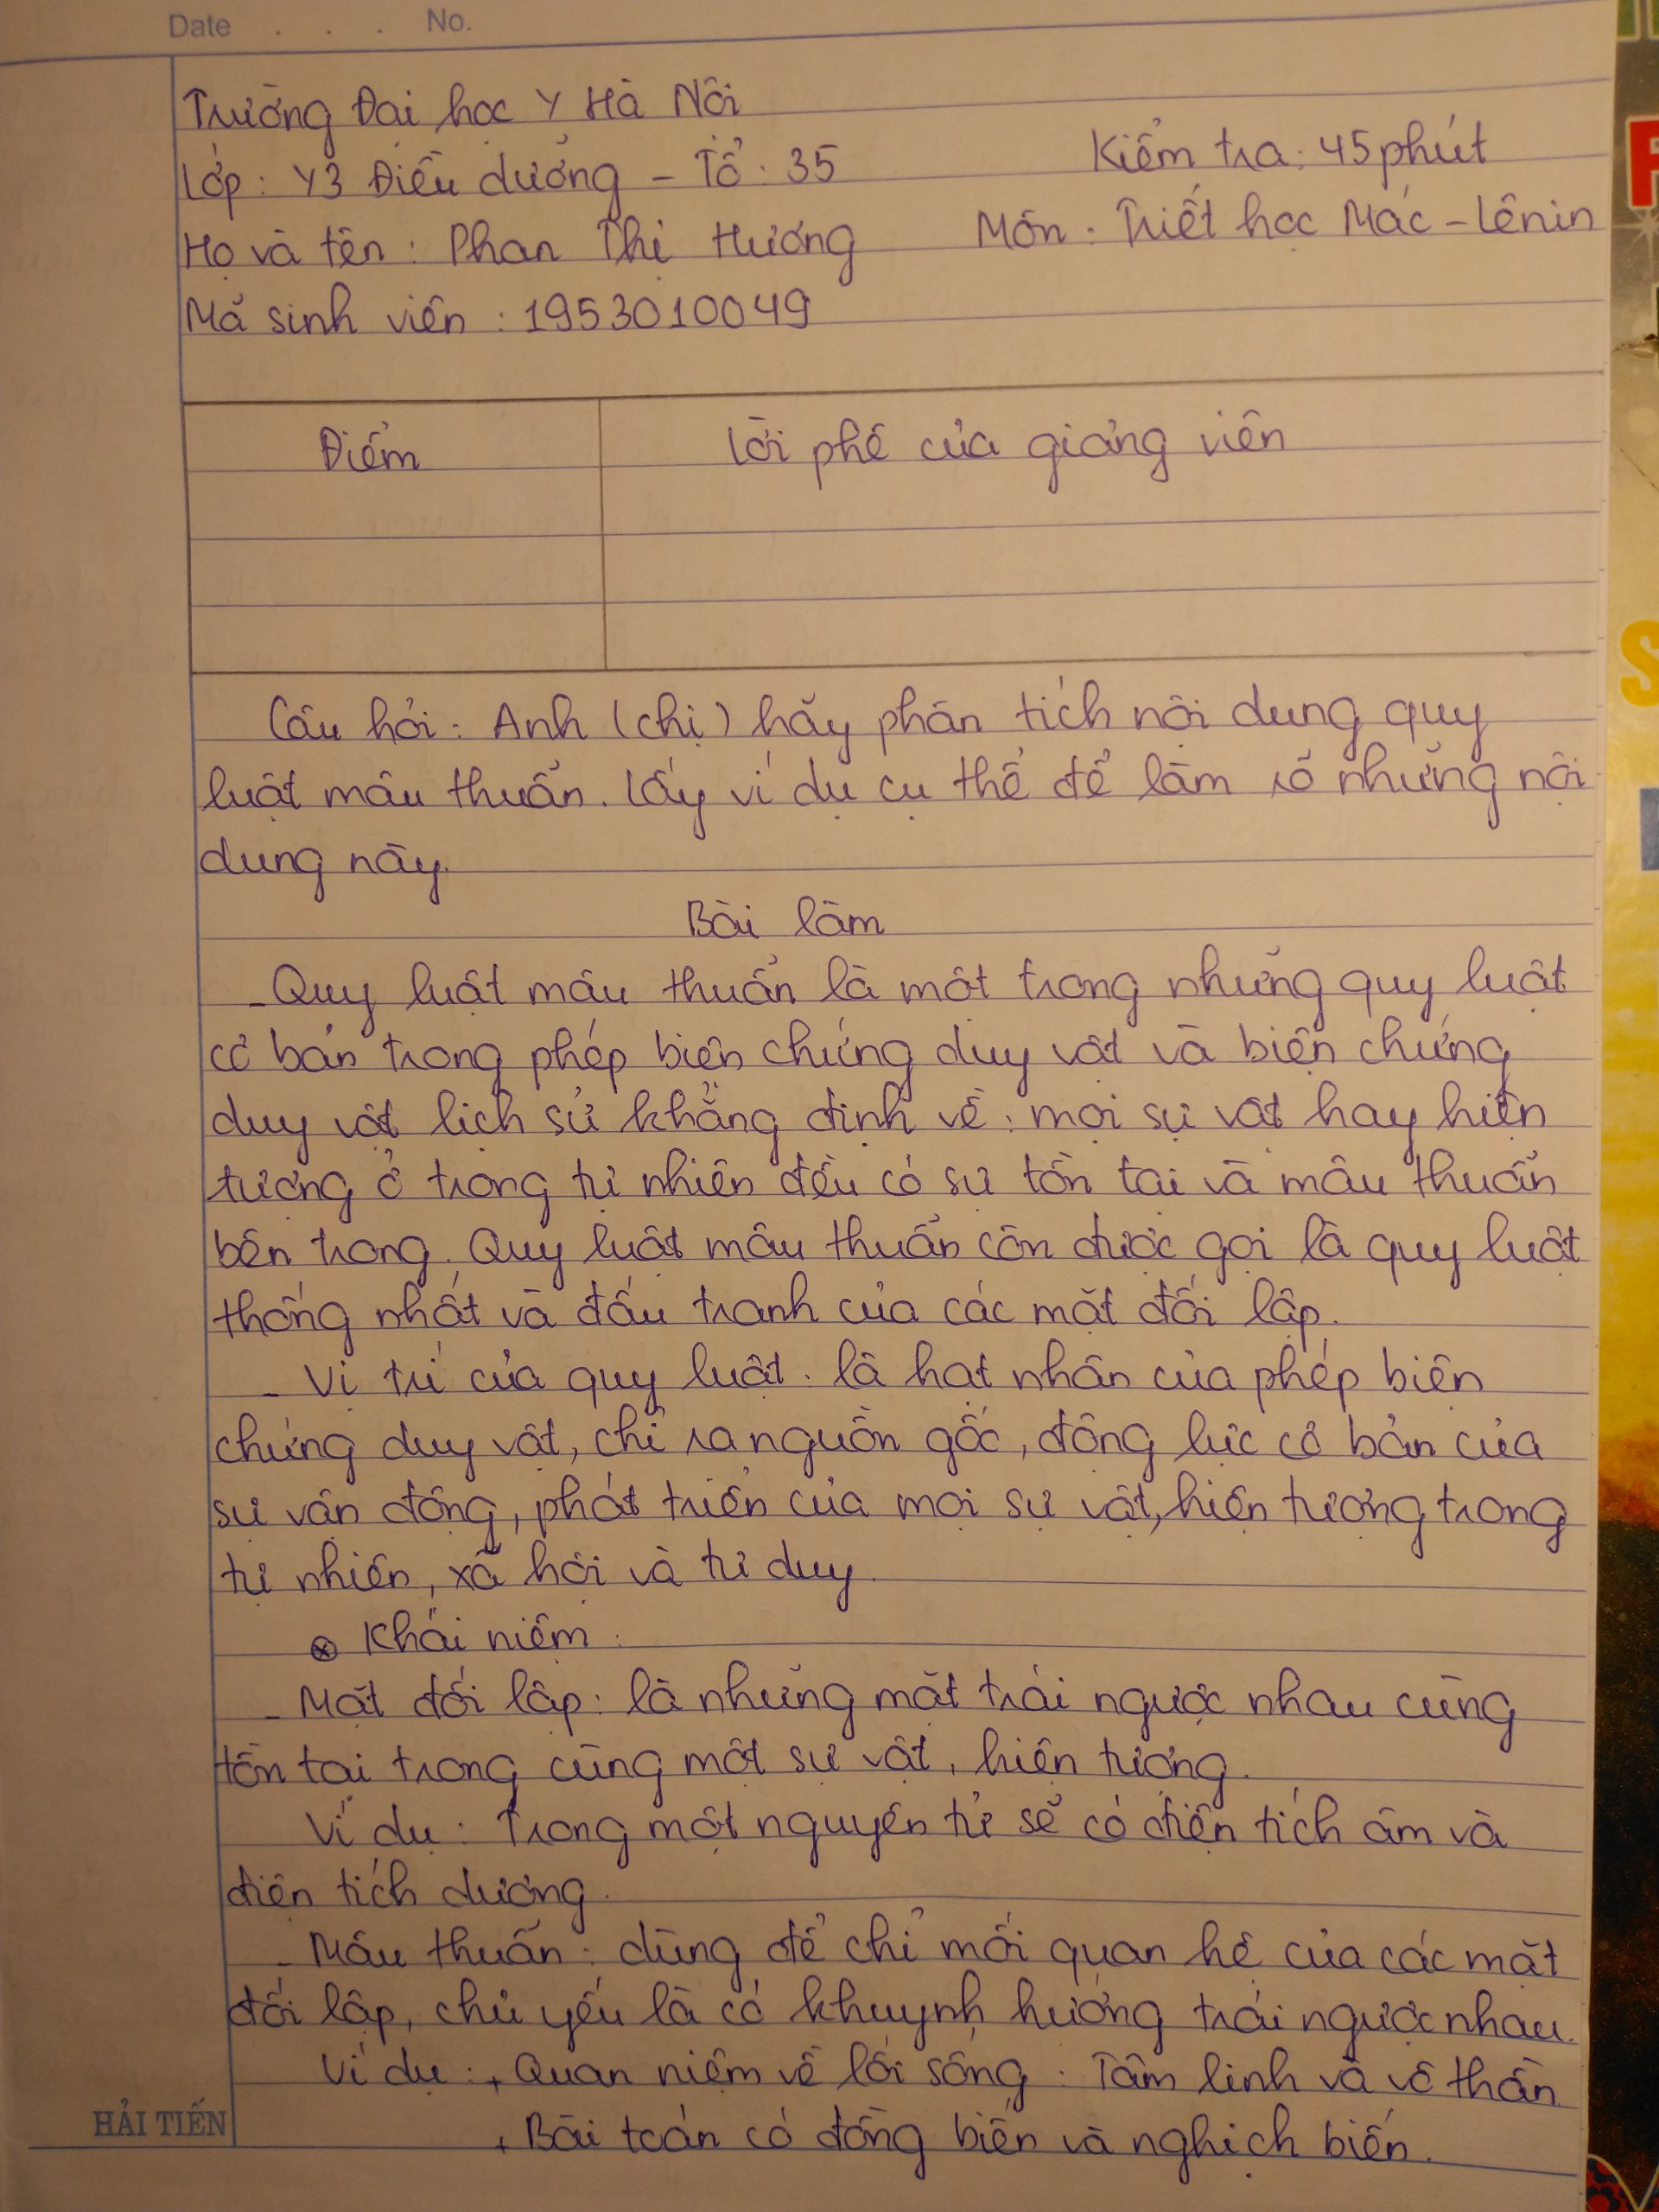 Date . . . No.
Trường Đại học Y Hà Nội
Lớp: Y3 Điều dưỡng - Tổ: 35 Kiểm tra: 45 phút
Họ và tên: Phan Thị Hương Môn: Triết học Mác - Lênin
Mã sinh viên: 1953010049
Điểm Lời phê của giảng viên
Câu hỏi: Anh (chị) hãy phân tích nội dung quy
luật mâu thuẫn. Lấy ví dụ cụ thể để làm rõ những nội
dung này.
Bài làm
- Quy luật mâu thuẫn là một trong những quy luật
cơ bản trong phép biện chứng duy vật và biện chứng
duy vật lịch sử khẳng định về: mọi sự vật hay hiện
tượng ở trong tự nhiên đều có sự tồn tại và mâu thuẫn
bên trong. Quy luật mâu thuẫn còn được gọi là quy luật
thống nhất và đấu tranh của các mặt đối lập.
- Vị trí của quy luật: là hạt nhân của phép biện
chứng duy vật, chỉ ra nguồn gốc, động lực cơ bản của
sự vận động, phát triển của mọi sự vật, hiện tượng trong
tự nhiên, xã hội và tư duy.
⊗ Khái niệm:
- Mặt đối lập: là những mặt trái ngược nhau cùng
tồn tại trong cùng một sự vật, hiện tượng.
Ví dụ: Trong một nguyên tử sẽ có điện tích âm và
điện tích dương.
- Mâu thuẫn: dùng để chỉ mối quan hệ của các mặt
đối lập, chủ yếu là có khuynh hướng trái ngược nhau.
Ví dụ: + Quan niệm về lối sống: Tâm linh và vô thần
+ Bài toán có đồng biến và nghịch biến.
HẢI TIẾN